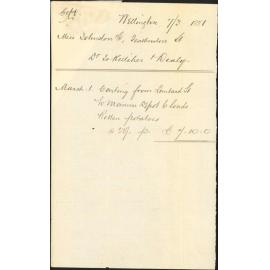 Wellington 7/3 1881
Miss Johnston &, Featherston St
Dr To Kelleher & Dealy
March 1. Carting from Lombard St
to Manure Depot 6 loads
Rotten potatoes
£ 7.10.0